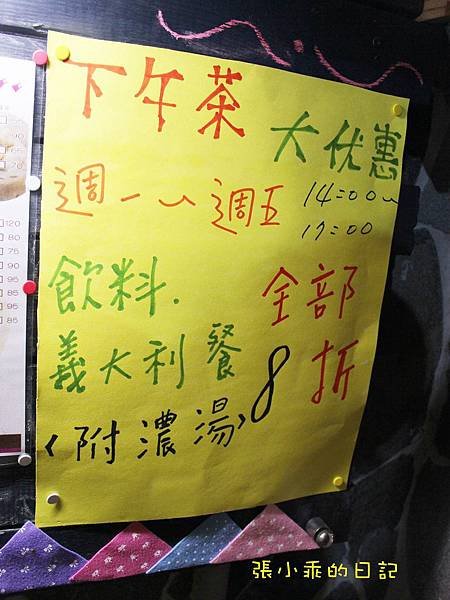 下午茶
大优惠
週一~週五
14:00~
17:00
飲料.
全部
義大利餐
8折
<附濃湯>
120
80
75
90
95
95
85
85
張小乖的日記